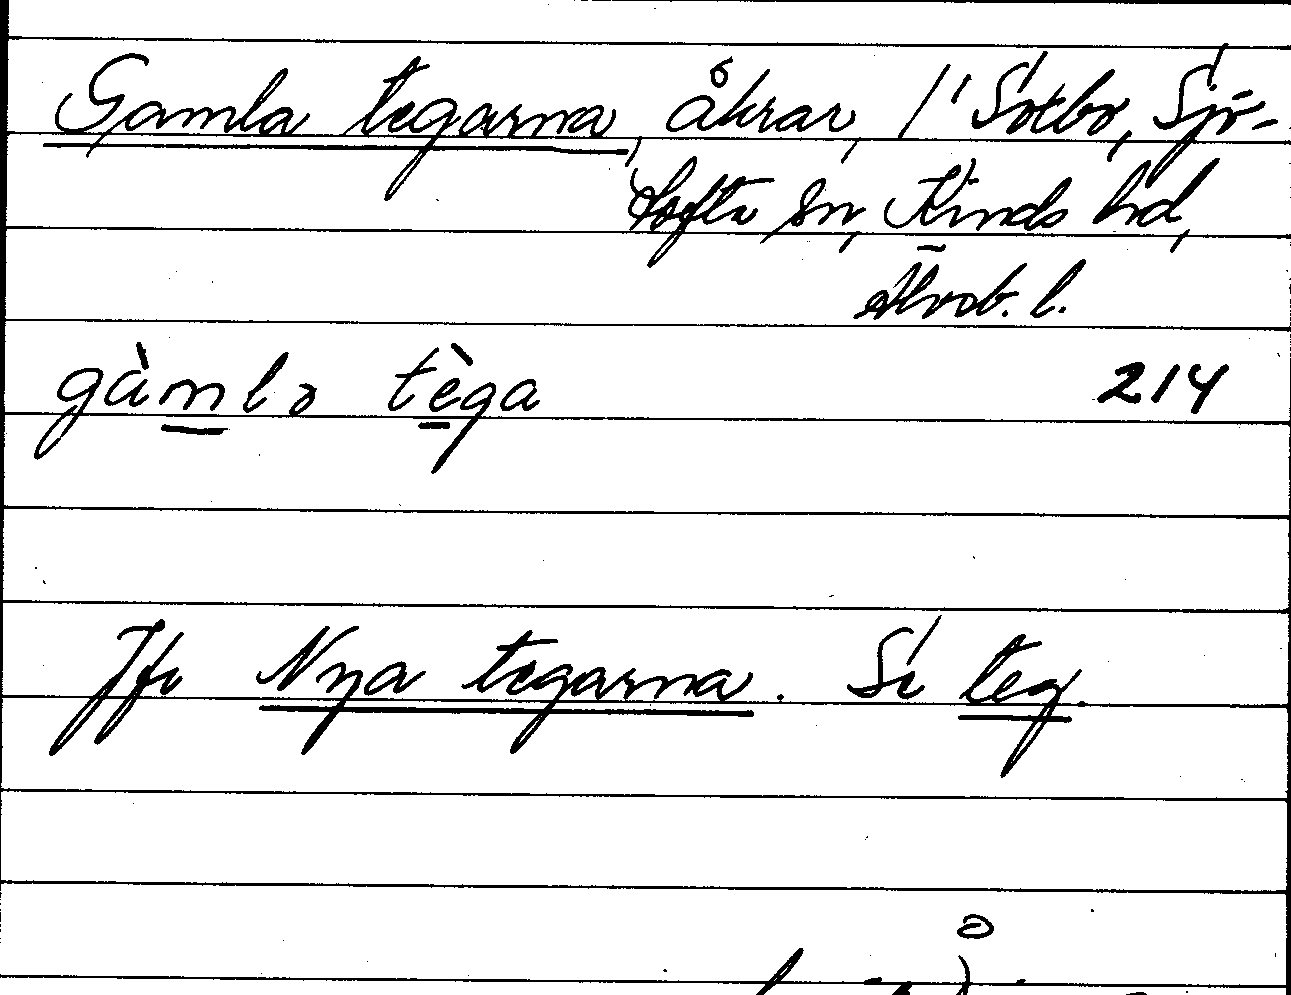 Gamla tegarna, åkrar, 1' Sotbo, Sjö-
tofta sn, Kinds hd,
Älvsb. l.
gàmlə tèga 214
Jfr Nya tegarna. Se teg.